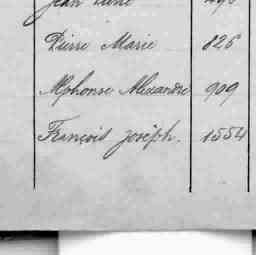 Jean
Pierre Marie 826
Alphonse Alexandre 909
François Joseph. 1554